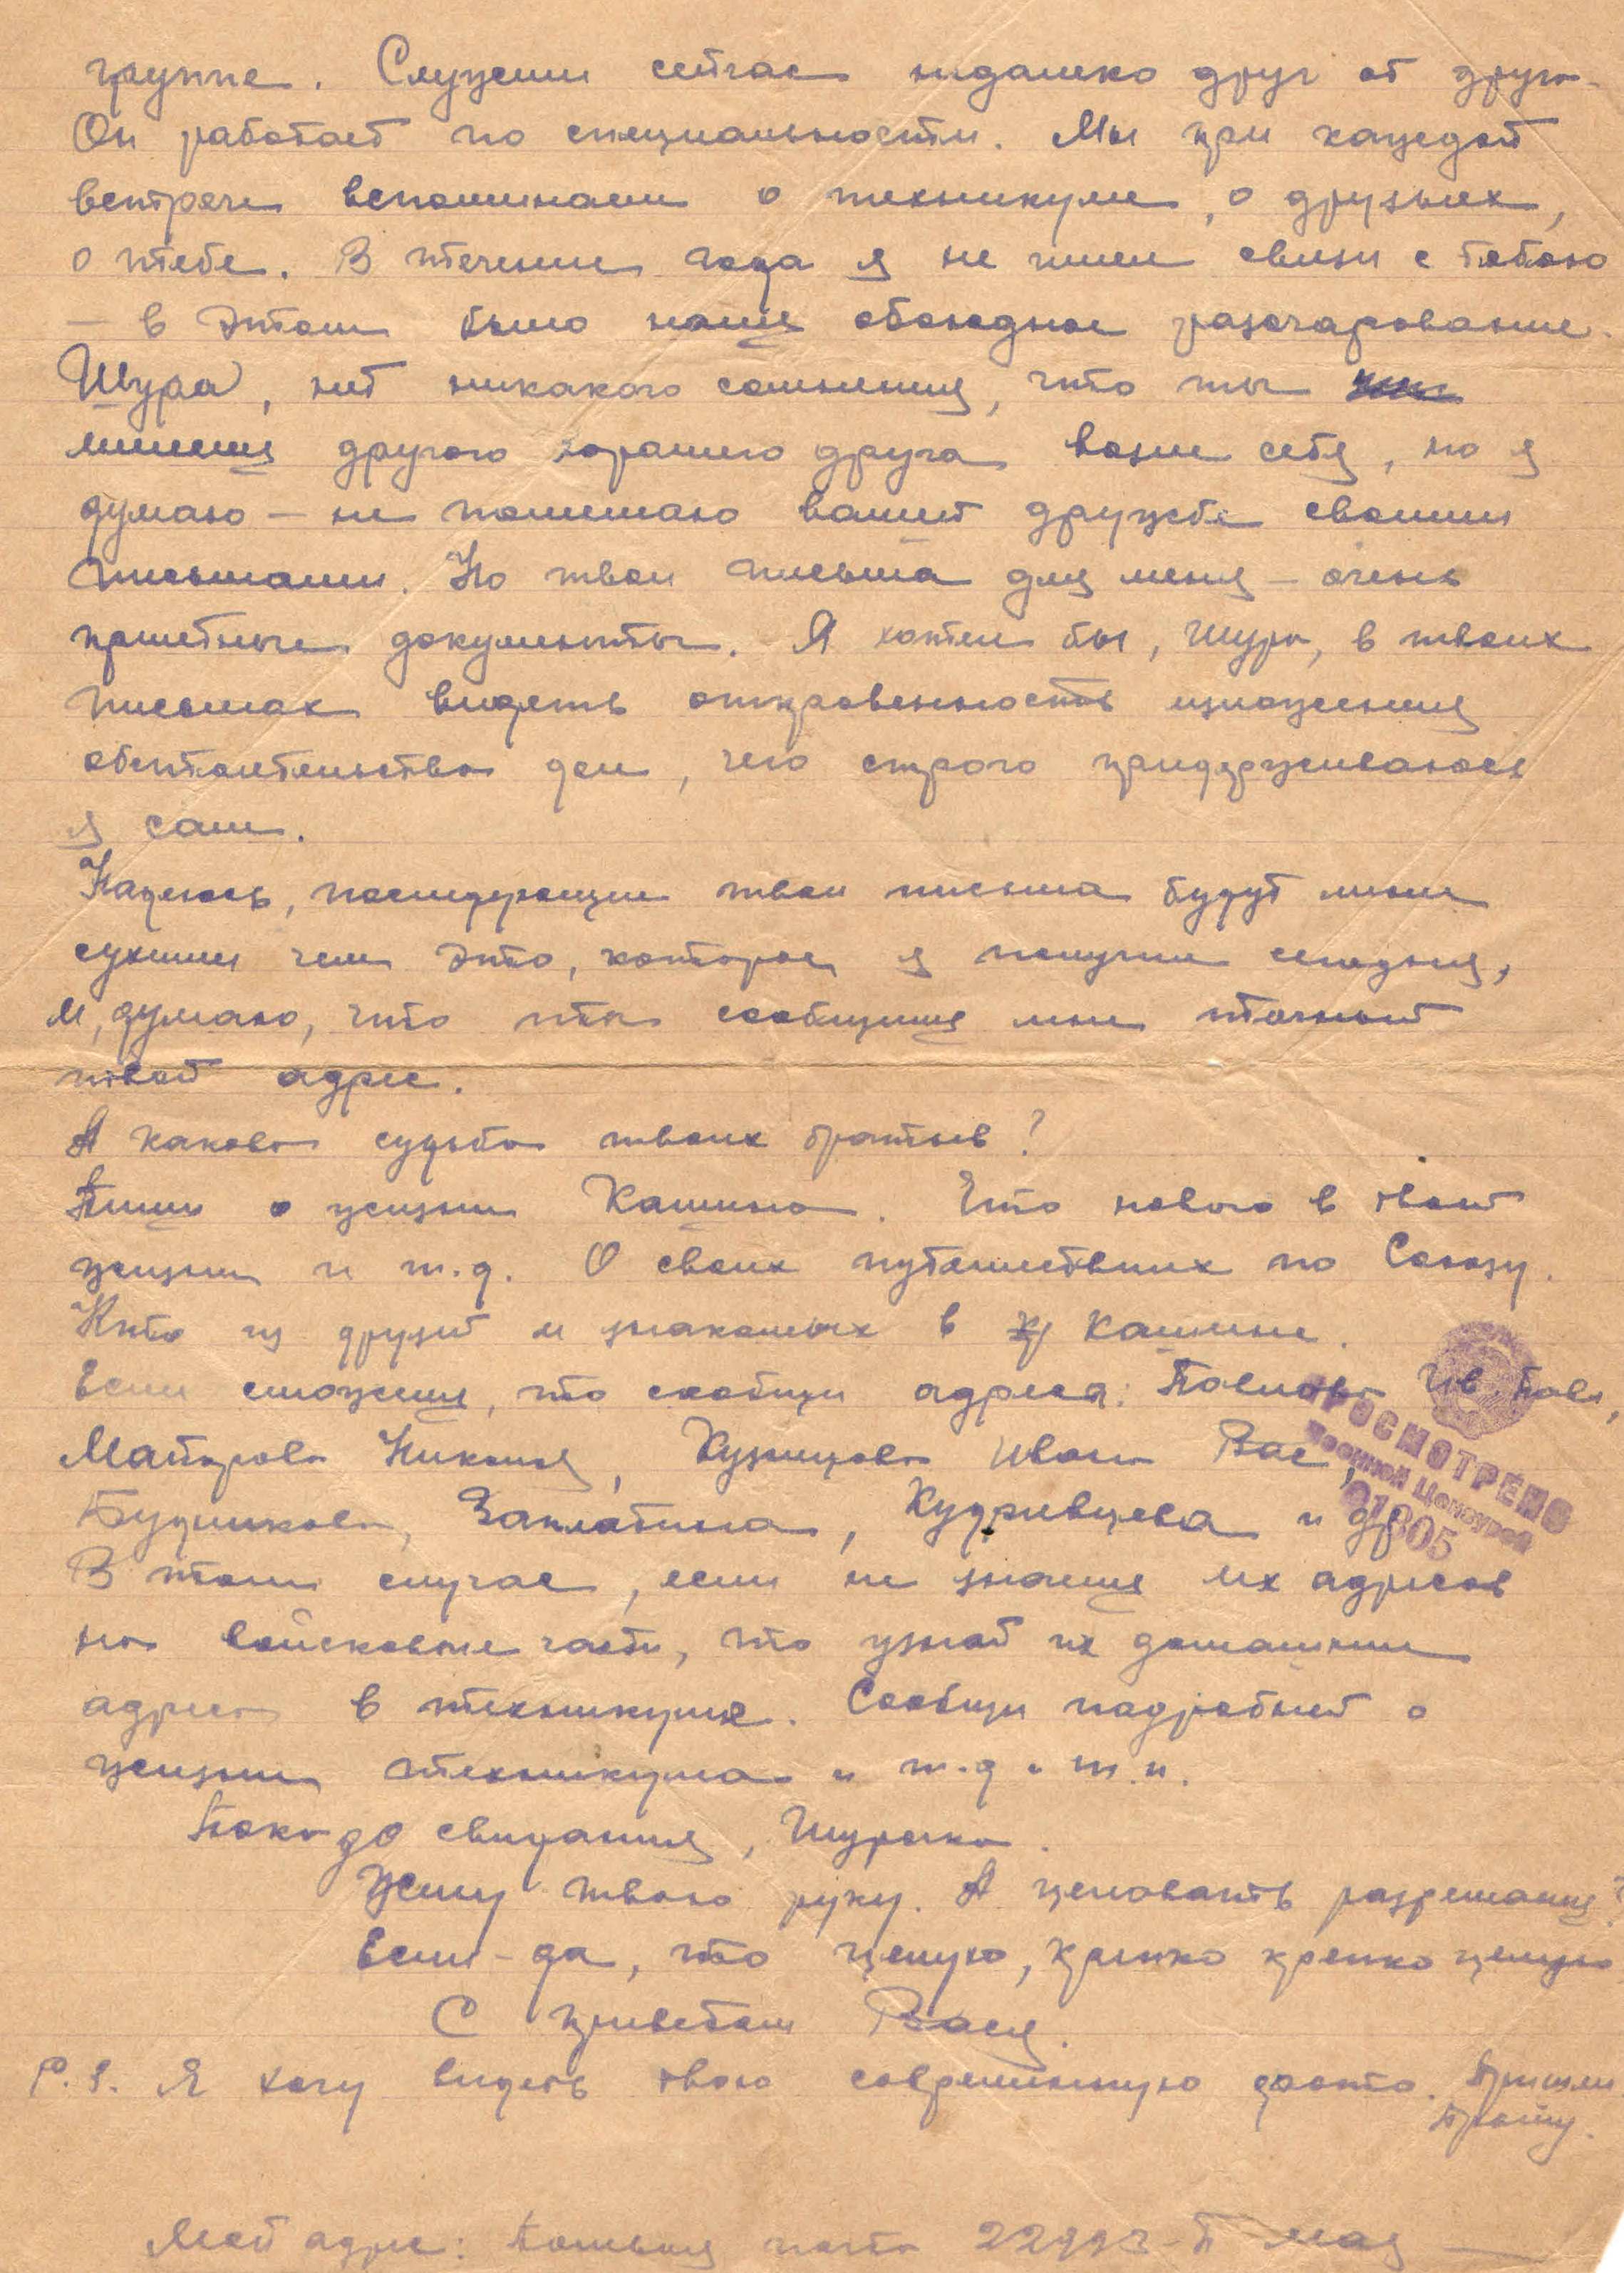 группе. Служим сейчас недалеко друг от друга.
Он работает по специальности. Мы при каждой
встрече вспоминаем о техникуме, о друзьях,
о тебе. В течении года я не имел связи с тобою
— в этом было наше обоюдное разочарование.
Шура, нет никакого сомнения, что ты
имеешь другого хорошего друга возле себя, но я
думаю — не помешаю вашей дружбе своими
письмами. Но твои письма для меня — очень
приметные документы. Я хотел бы, Шура, в твоих
письмах видеть откровенность изложения
обстоятельства дел, чего строго придерживаюсь
я сам.
Надеюсь, последующие твои письма будут менее
сухими чем это, которое я получил сегодня,
и, думаю, что ты сообщишь мне точный
твой адрес.
А какова судьба твоих братьев?
Пиши о жизни Кашина. Что нового в твоей
жизни и т.д. О своих путешествиях по Союзу.
Кто из друзей и знакомых в Кашине.
Если сможешь, то сообщи адреса: Павлова Ив. Павл,
Майорова Николая, Кузнецова Ивана Вас,
Будникова, Заплатина, Кудрявцева и др
В том случае, если не знаешь их адресов
на войсковые части, то узнай их домашние
адреса в техникуме. Сообщи подробней о
жизни техникума и т.д и т.п.
Пока до свидания, Шурочка.
Жму твою руку. А целовать разрешаешь?
Если - да, то целую, крепко крепко целую
С приветом Вася.
P.S. Я хочу видеть твою современную фото. Пришли
Прошу.
Мой адрес: Полевая почта
ПРОСМОТРЕНО
Военной Цензурой
01805